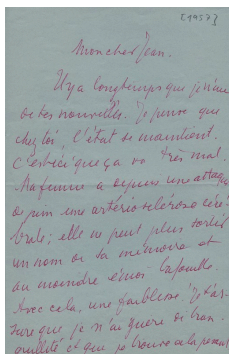 [1957]
Mon cher Jean.
Il y a longtemps que je n'ai eu
de tes nouvelles. Je pense que
chez toi, l'état se maintient.
C'est ici que ça va très mal.
Ma femme a depuis une attaque
une artério-sclérose céré-
brale; elle ne peut plus sortir
un nom de sa mémoire et
au moindre émoi bafouille.
Avec cela, une faiblesse. Je t'as-
sure que je n'ai guère de tran-
quillité et que je trouve